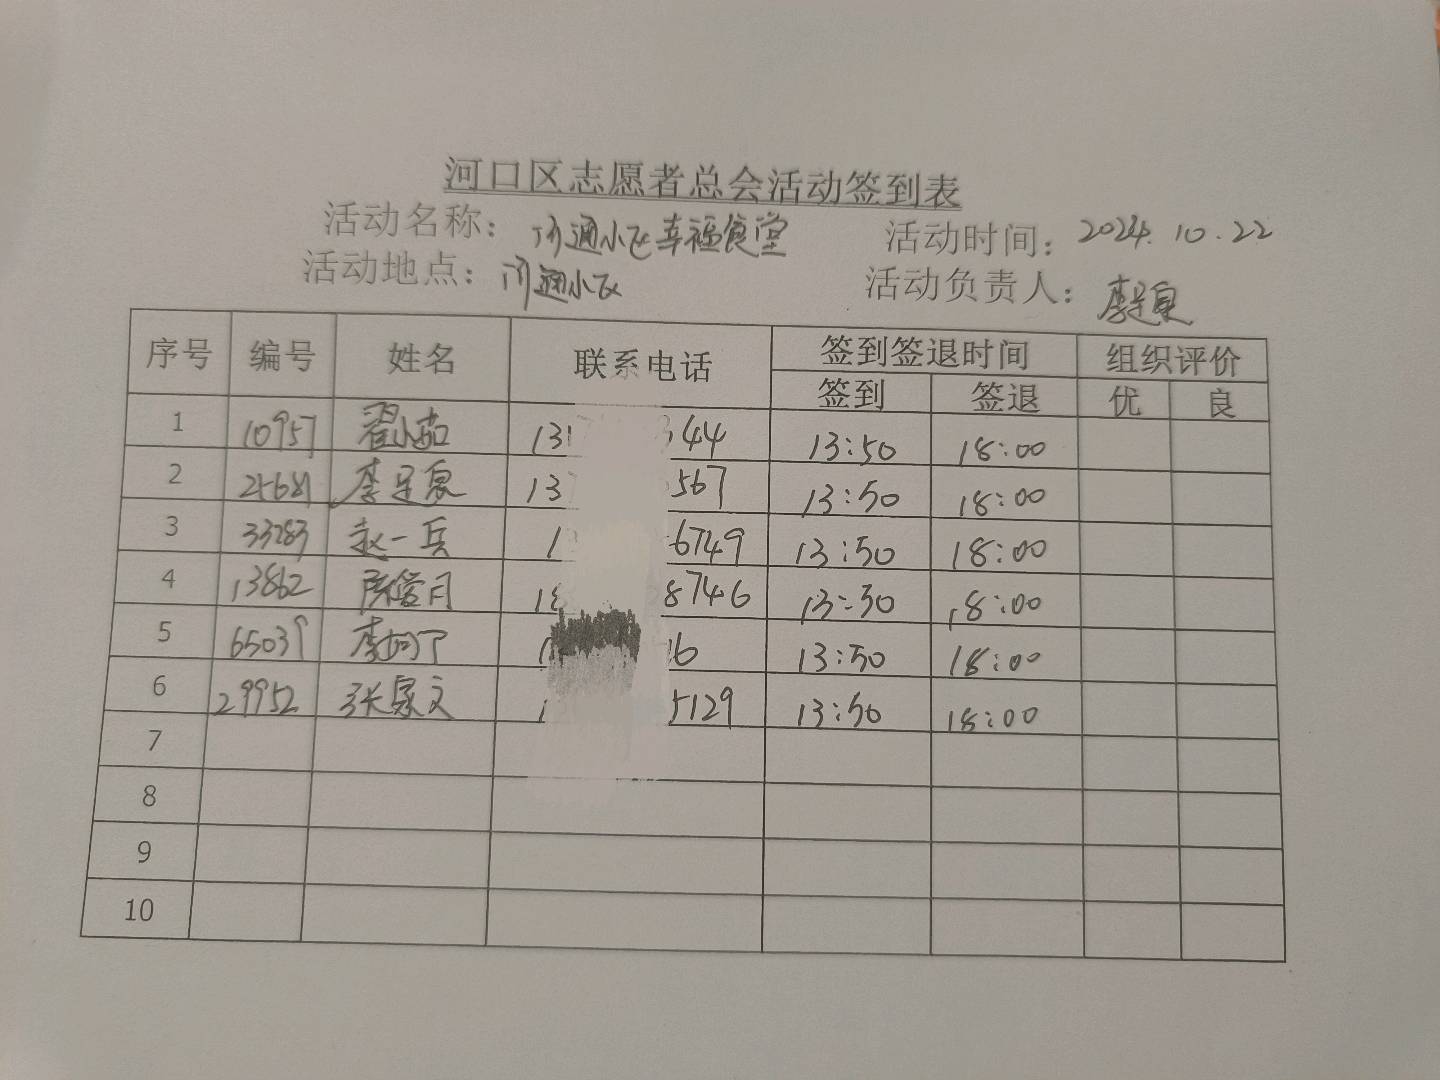 河口区志愿者总会活动签到表
活动名称: 河通小区幸福食堂 活动时间: 2024.10.22
活动地点: 河通小区 活动负责人: 李足泉
序号 编号 姓名 联系电话 签到签退时间 组织评价
签到 签退 优 良
1 10957 翟小茹 44 13:50 18:00
2 李足泉 567 13:50 18:00
3 33283 赵一兵 6749 13:50 18:00
4 13862 陈营月 8746 13:30 18:00
5 65039 16 13:50 18:00
6 29952 张家文 5129 13:50 18:00
7
8
9
10